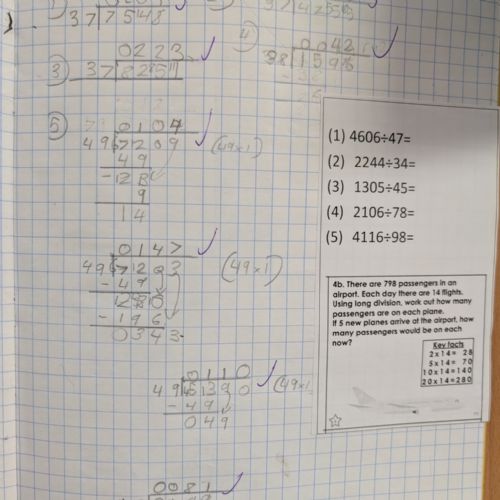 37 7548
3) 0223
37 8251
4) 0042
38 1596
5) 0107
49 7209 (49×1)
49
-128
9
14
0147
49 7203 (49×1)
-49
-196
0343
0110
49 5390 (49×1
-49
049
0081
(1) 4606÷47=
(2) 2244÷34=
(3) 1305÷45=
(4) 2106÷78=
(5) 4116÷98=
4b. There are 798 passengers in an
airport. Each day there are 14 flights.
Using long division, work out how many
passengers are on each plane.
If 5 new planes arrive at the airport, how
many passengers would be on each
now?
Key facts
2 x 14 = 28
5 x 14 = 70
10 x 14 = 140
20 x 14 = 280